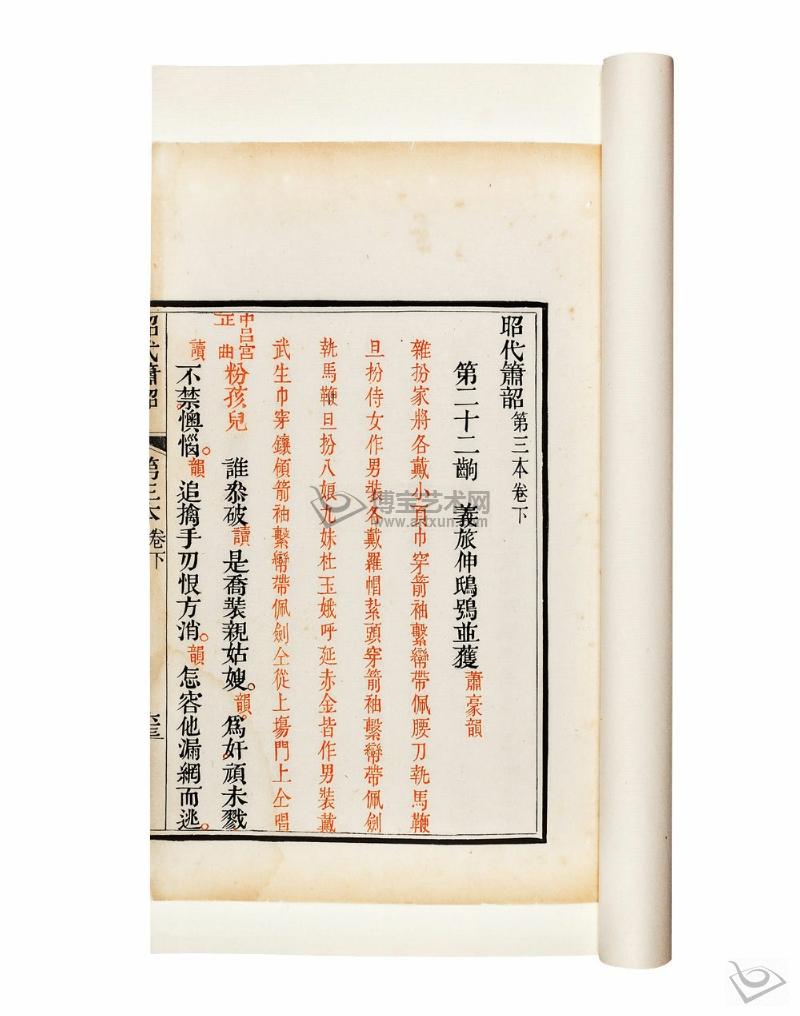 昭代簫韶 第三本卷下
第二十二齣 義旅伸鴟鴞並獲 蕭豪韻
雜扮家將各戴小頁巾穿箭袖繫鸞帶佩腰刀執馬鞭
旦扮侍女作男裝各戴羅帽紮頭穿箭袖繫鸞帶佩劍
執馬鞭旦扮八娘九妹杜玉娥呼延赤金皆作男裝戴
武生巾穿鑲領箭袖繫鸞帶佩劍仝從上塲門上仝唱
中呂宮正曲 粉孩兒 誰叅破讀是喬裝親姑嫂韻爲奸頑未戮
讀不禁懊惱韻追擒手刃恨方消韻怎容他漏網而逃
昭代簫韶 第三本卷下
博宝艺术网
www.artxun.com